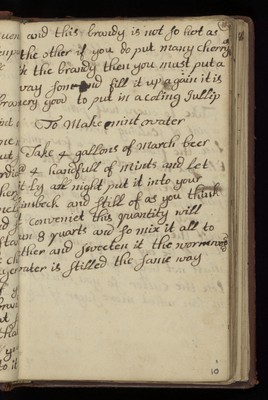 and this brandy is not so hot as
the other if you do put many cherrys
the brandy then you must put a
way some and fill it up again it is
very good to put in a coling Jullip
To Make mint water
Take 4 gallons of march beer
4 handfull of mints and let
it ly all night put it into your
limbeck and still of as you think
convenient this quantity will
run 8 quarts and so mix it all to
gether and sweeten it the wormwood
water is stilled the same way
10